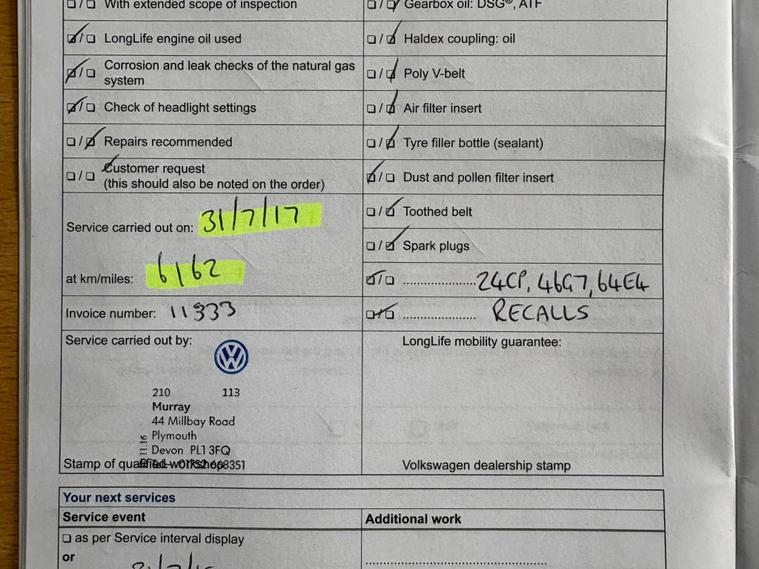 With extended scope of inspection
LongLife engine oil used
Corrosion and leak checks of the natural gas
system
Check of headlight settings
Repairs recommended
Customer request
(this should also be noted on the order)
Service carried out on: 31/7/17
at km/miles: 6162
Invoice number: 11333
Service carried out by:
210 113
Murray
44 Millbay Road
Plymouth
Devon PL1 3FQ
Stamp of qualified workshop
Gearbox oil: DSG®, ATF
Haldex coupling: oil
Poly V-belt
Air filter insert
Tyre filler bottle (sealant)
Dust and pollen filter insert
Toothed belt
Spark plugs
24CP, 46G7, 64E4
RECALLS
LongLife mobility guarantee:
Volkswagen dealership stamp
Your next services
Service event
Additional work
as per Service interval display
or